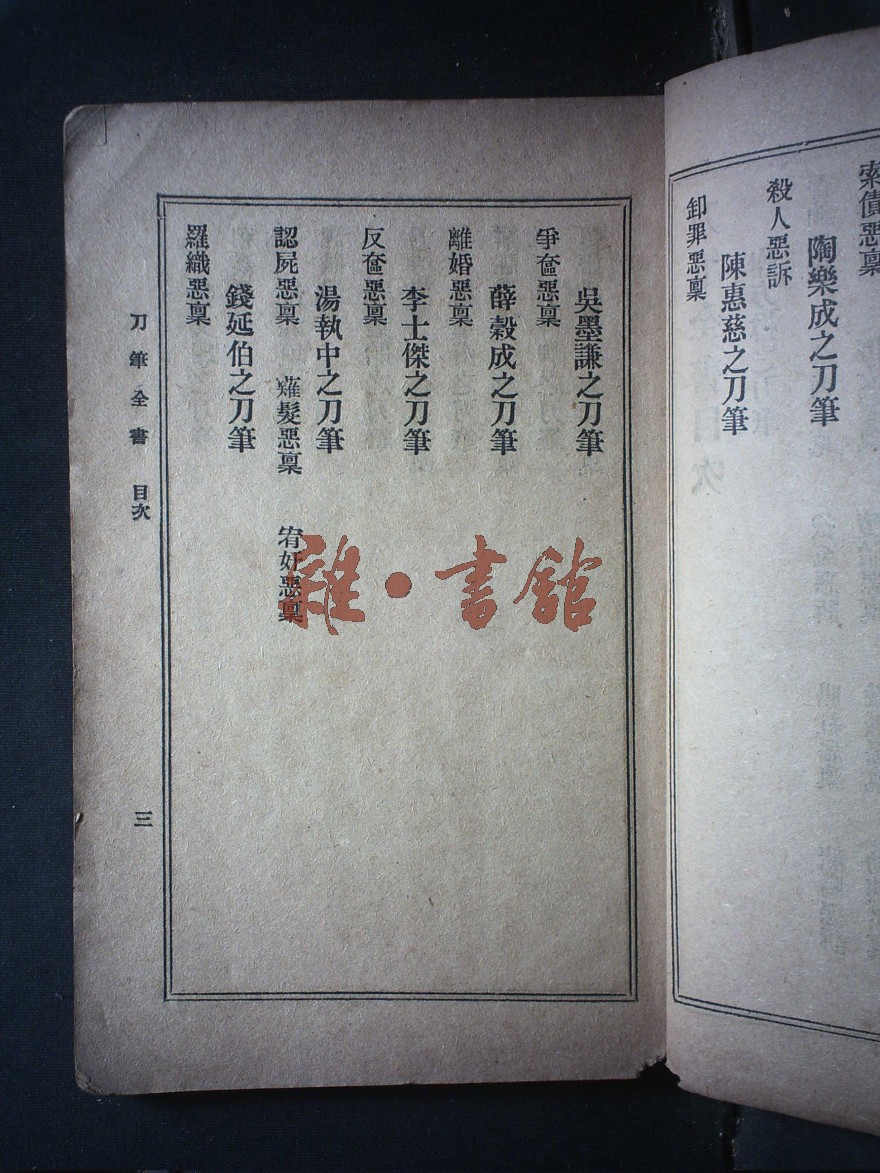 索債惡稟
陶樂成之刀筆
殺人惡訴
陳惠慈之刀筆
卸罪惡稟
吳墨謙之刀筆
爭奩惡稟
薛穀成之刀筆
離婚惡稟
李士傑之刀筆
反奩惡稟
湯執中之刀筆
認屍惡稟 薙髮惡稟 宥奸惡稟
錢延伯之刀筆
羅織惡稟
刀筆全書 目次
三
雜·書館